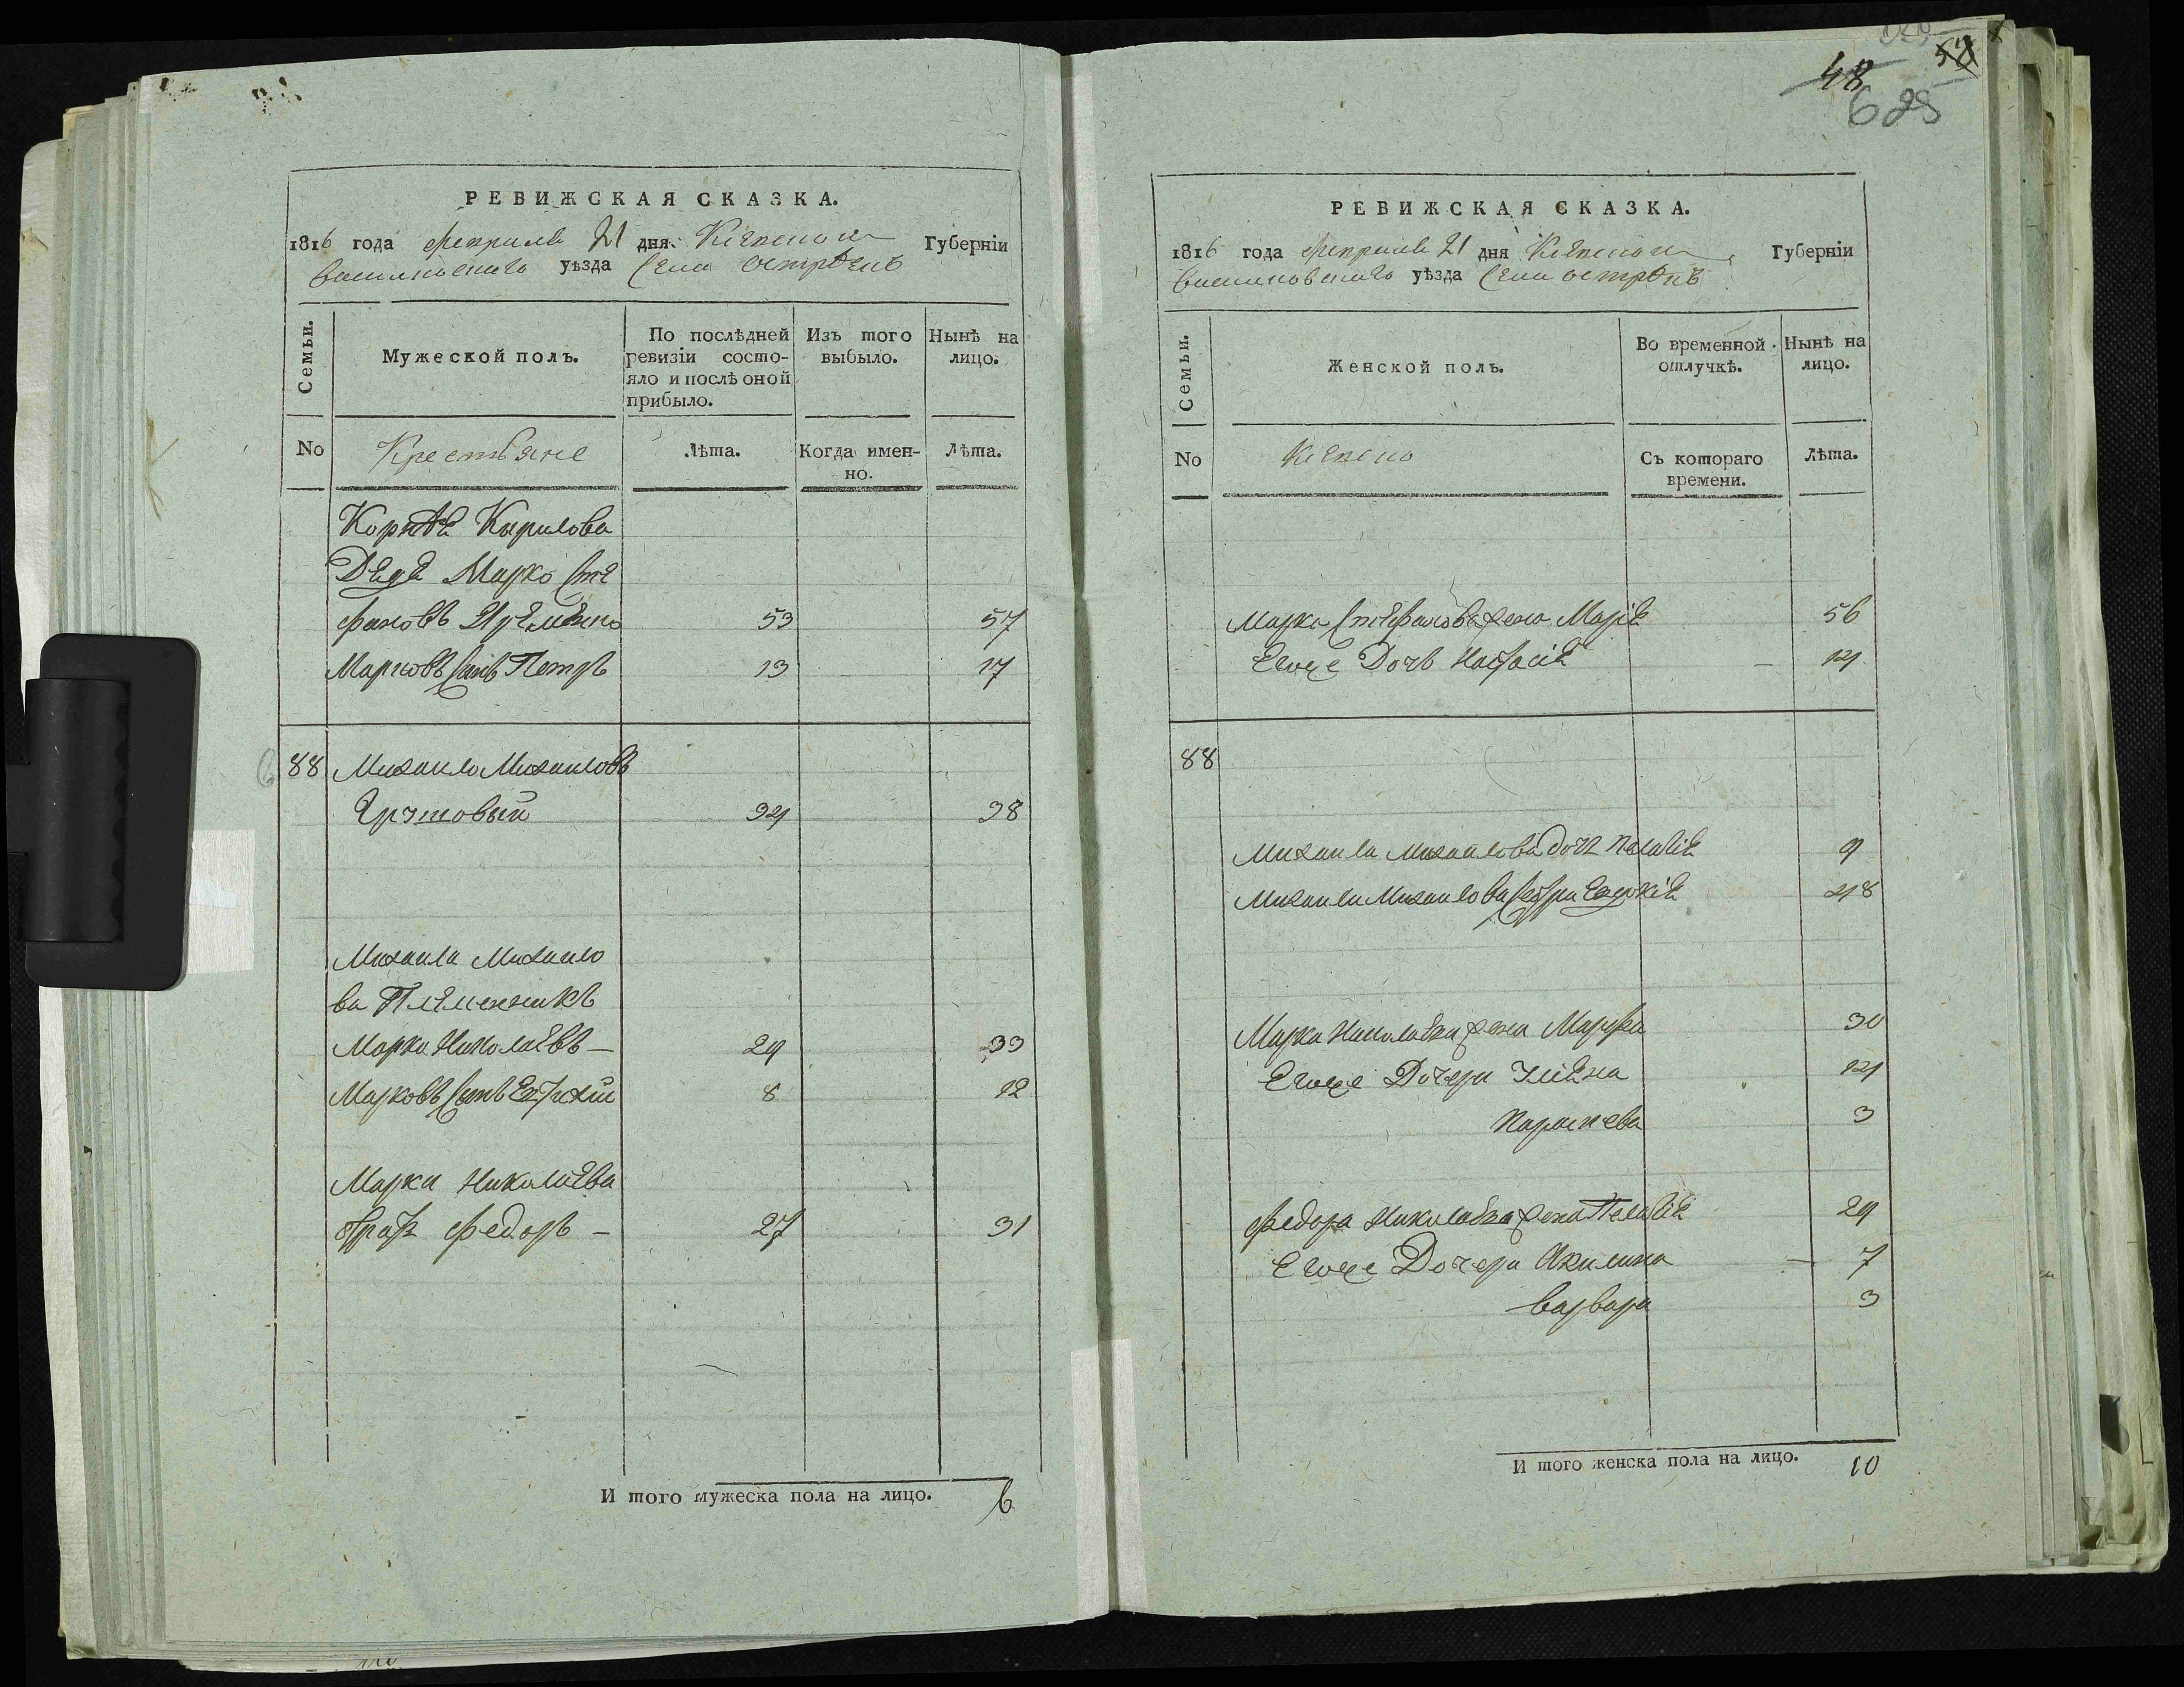 48
625
РЕВИЖСКАЯ СКАЗКА.
1816 года февраля 21 дня Киевской Губерніи
Васильковскаго уѣзда Села Острова
Семьи.
Мужеской полъ.
По послѣдней ревизіи состояло и послѣ оной прибыло.
Изъ того выбыло.
Нынѣ на лицо.
No
Крестьяне
Лѣта.
Когда именно.
Лѣта.
Корнѣя Кирилова
Дядя Марко Сте
фановъ 53 57
Марковъ сынъ Петръ 13 17
88 Михаило Михаиловъ
34 38
Михаила Михаило
ва Племенникъ
Марко Николаевъ — 29 33
Марковъ сынъ 8 12
Марка Николаева
братъ Федоръ — 27 31
И того мужеска пола на лицо. 6
РЕВИЖСКАЯ СКАЗКА.
1816 года февраля 21 дня Киевской Губерніи
Васильковскаго уѣзда Села Острова
Семьи.
Женской полъ.
Во временной отлучкѣ.
Нынѣ на лицо.
No
Съ котораго времени.
Лѣта.
Марка Стефанова жена Марія 56
Егоже Дочь Настасія — 14
88
Михаила Михаилова дочь Пелагія 9
Михаила Михаилова сестра Евдокія 48
Марка Николаева жена Марфа 30
Егоже Дочери Уліяна 14
Параскева 3
Федора Николаева жена Пелагія 29
Егоже Дочери Акилина — 7
Варвара 3
И того женска пола на лицо. 10